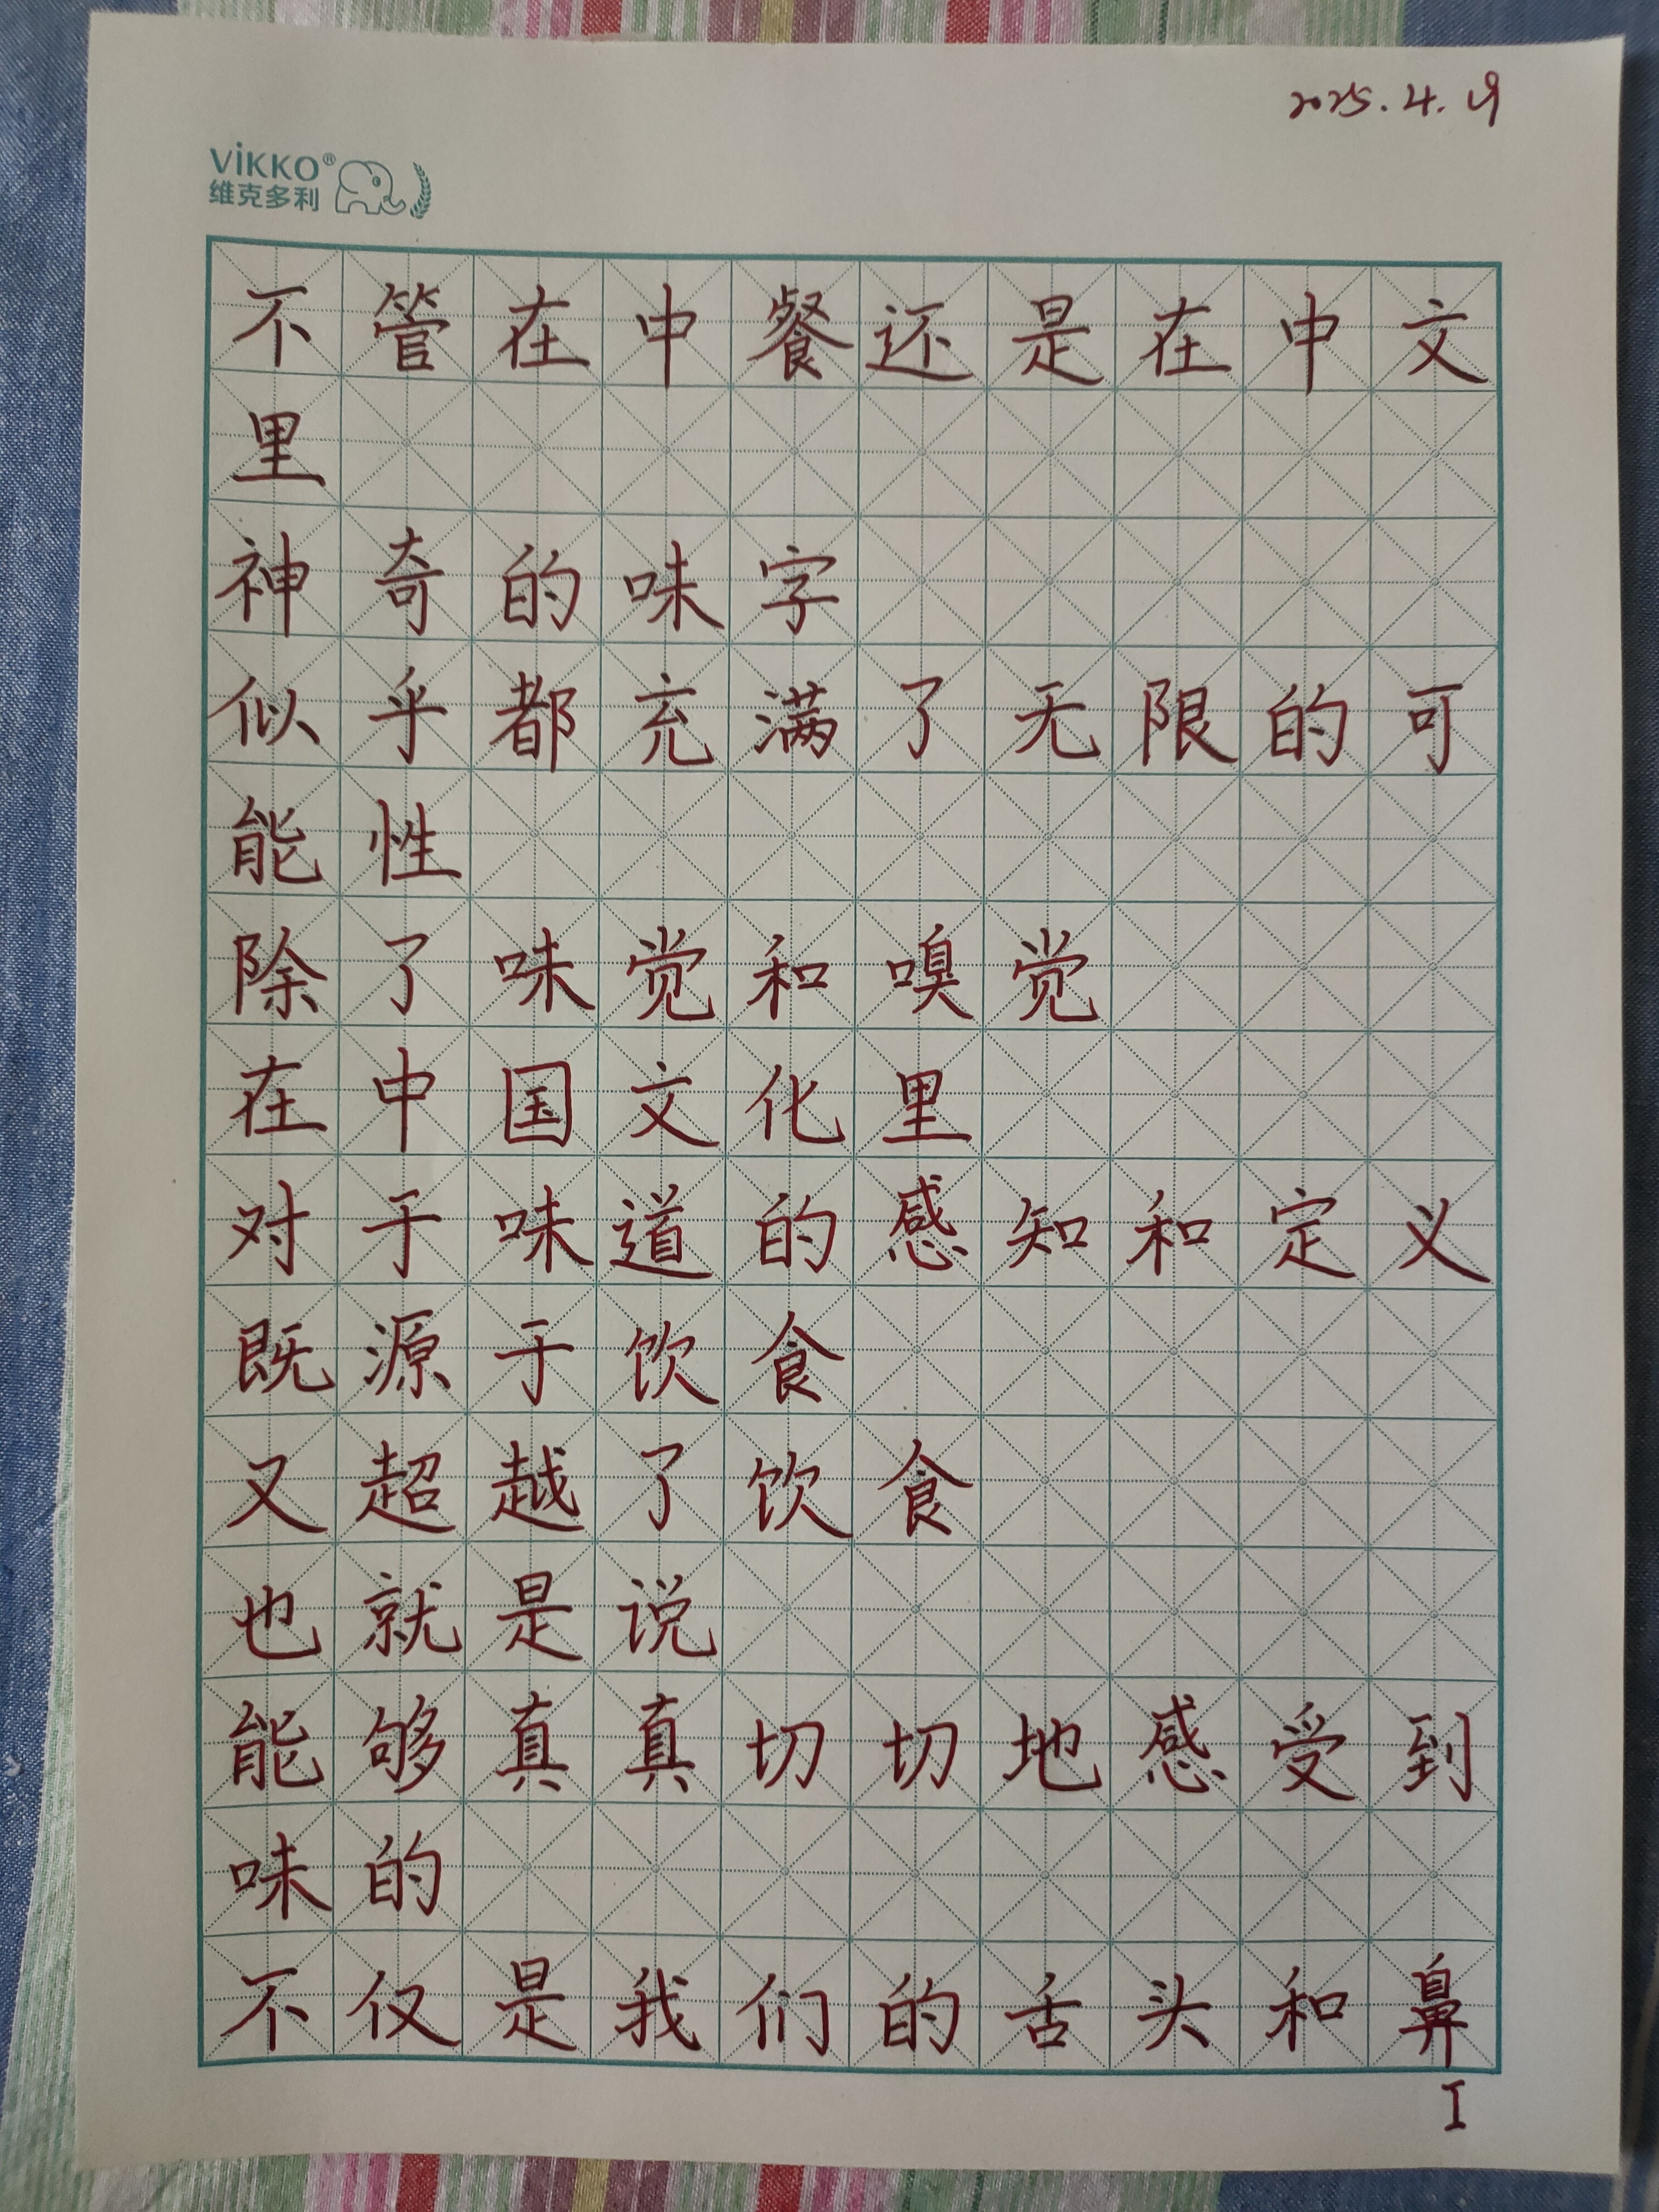 2025.4.19
ViKKO®
维克多利
不管在中餐还是在中文
里
神奇的味字
似乎都充满了无限的可
能性
除了味觉和嗅觉
在中国文化里
对于味道的感知和定义
既源于饮食
又超越了饮食
也就是说
能够真真切切地感受到
味的
不仅是我们的舌头和鼻
I